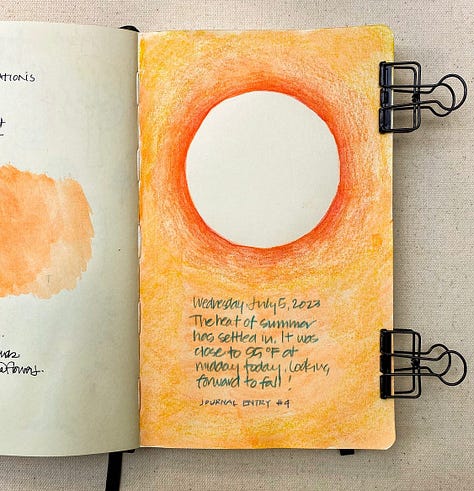 ATIONS
Wednesday July 5, 2023
The heat of summer
has settled in. It was
close to 95 °F at
midday today. Looking
forward to fall!
JOURNAL ENTRY #4